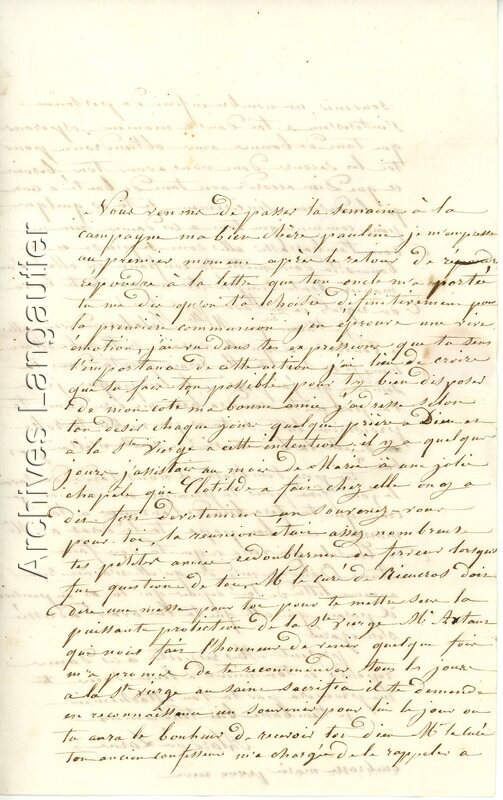 Nous venons de passer la semaine à la
campagne ma bien chère pauline je m'empresse
au premier moment après le retour de
répondre à la lettre que ton oncle m'a portée
tu me dis qu'on t'a choisie définitivement pour
la première communion j'en éprouve une vive
émotion, j'ai vu dans tes expressions que tu sens
l'importance de cette action j'ai lieu de croire
que tu fais ton possible pour t'y bien disposer
de mon cote ma bonne amie j'adresse selon
ton desir chaque jour quelque priere a Dieu et
à la Ste Vierge a cette intention il y a quelque
jours j'assistai au mois de Marie à une jolie
chapele que Clotilde a fait chez elle on y a
dis fort devotement un souvenez-vous
pour toi, la reunion etait assez nombreuse
tes petites amies redoublerent de ferveur lorsqu'il
fut question de toi, Mr le curé de Rieucros doit
dire une messe pour toi pour te mettre sous la
puissante protection de la Ste vierge Mr Artaur
que nous fait l'honneur de venir quelque fois
m'a promis de te recommander tous les jours
a la Ste vierge au saint sacrifice il te demande
en reconnaissance un souvenir pour lui le jour ou
tu aura le bonheur de recevoir ton dieu Mr le curé
ton ancien confesseur m'a chargé de le rappeler à
Archives Langautier